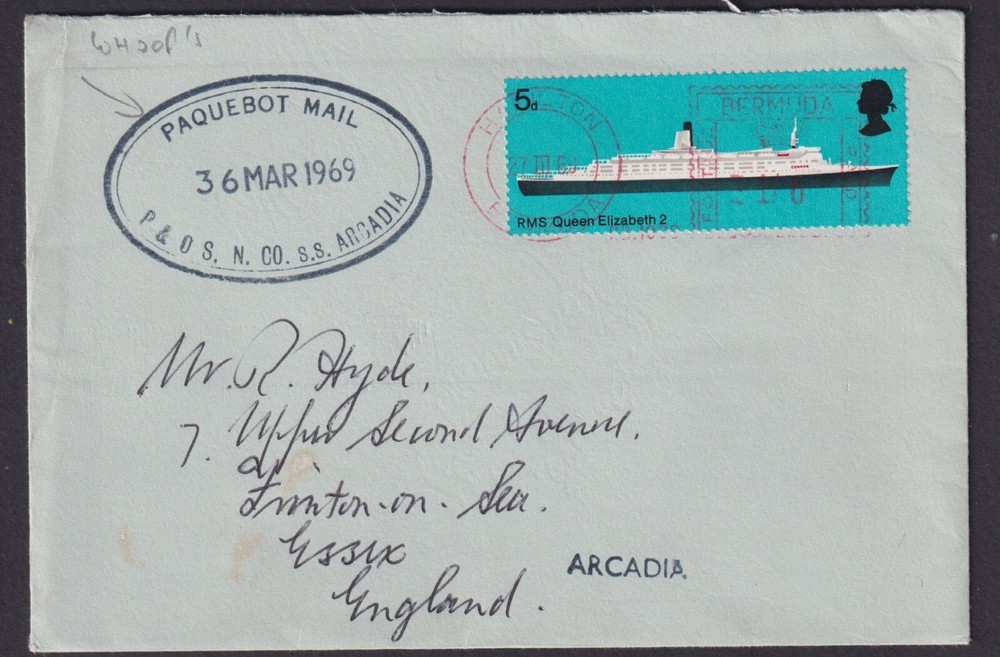 WHOOP'S
PAQUEBOT MAIL
36 MAR 1969
P & O S. N. CO. S.S. ARCADIA
5d
HAMILTON
27 III 69
BERMUDA
CUNARD
RMS Queen Elizabeth 2
Mr. R. Hyde,
7. Upper Second Avenue.
Frinton-on-Sea.
Essex
England.
ARCADIA.